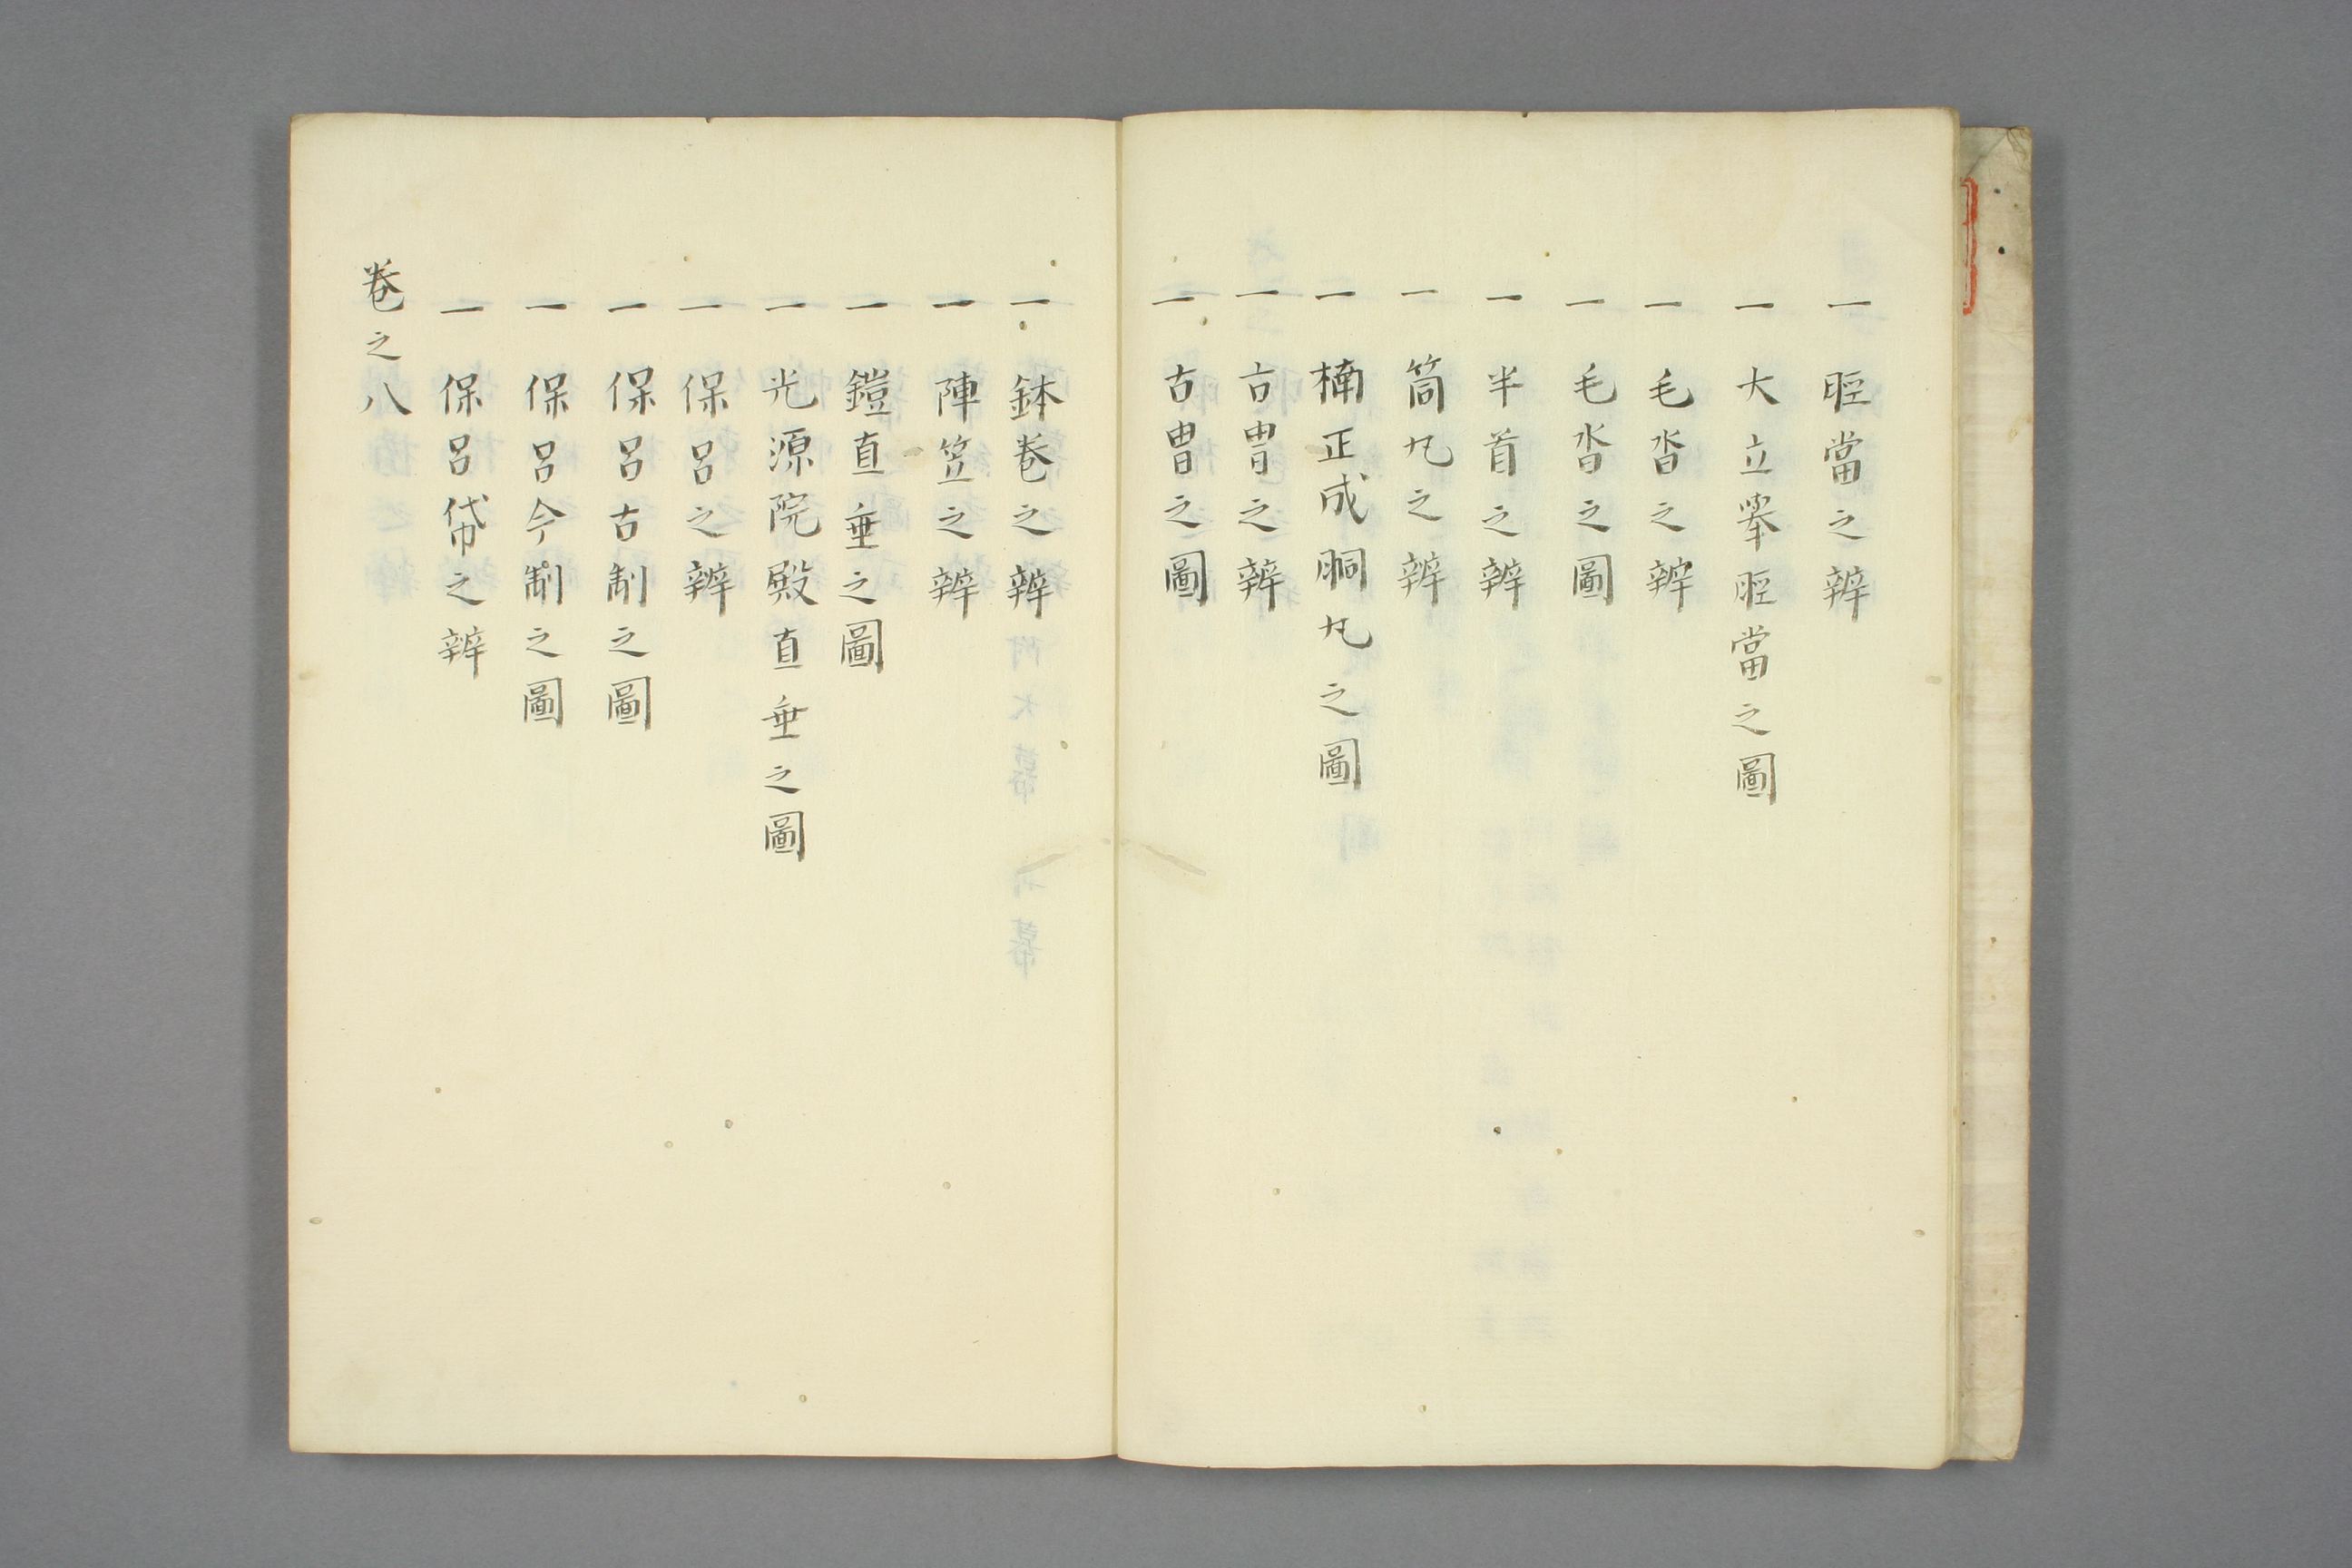 一 脛當之辨
一 大立挙脛當之圖
一 毛沓之辨
一 毛沓之圖
一 半首之辨
一 筒丸之辨
一 楠正成胴丸之圖
一 古冑之辨
一 古冑之圖
一 鉢巻之辨
一 陣笠之辨
一 鎧直垂之圖
一 光源院殿直垂之圖
一 保呂之辨
一 保呂古制之圖
一 保呂今制之圖
一 保呂帒之辨
巻之八